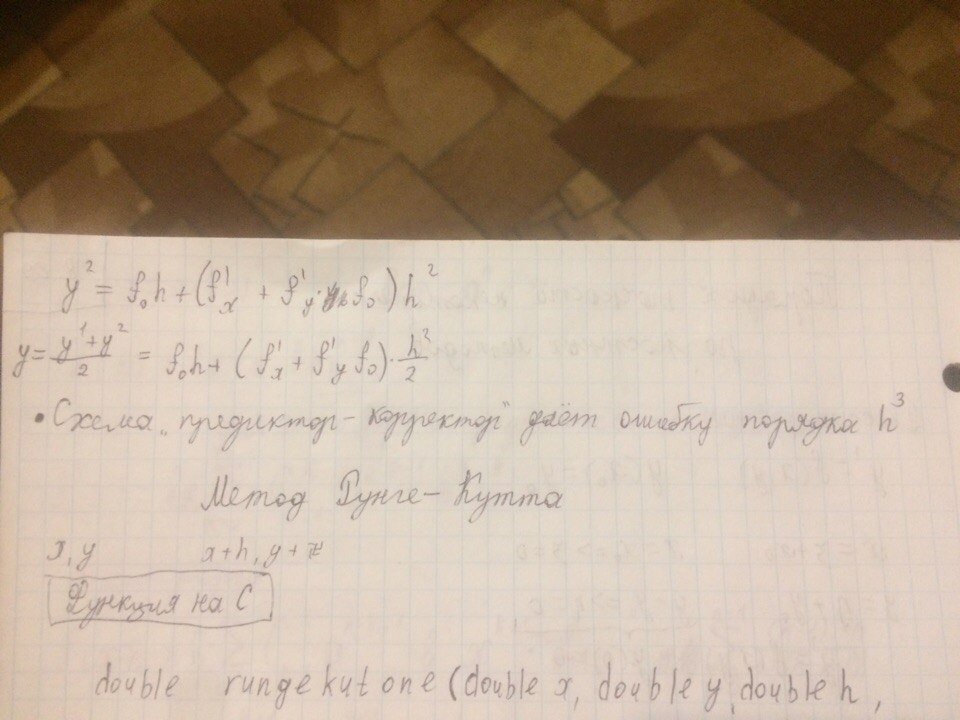 y² = f₀h + (f'ₓ + f'ᵧ f₀)h²
y = (y¹+y²)/2 = f₀h + (f'ₓ + f'ᵧ f₀)·h²/2
• Схема „предиктор-корректор" даёт ошибку порядка h³
Метод Рунге-Кутта
x, y x+h, y+
Функция на C
double rungekutone(double x, double y, double h,